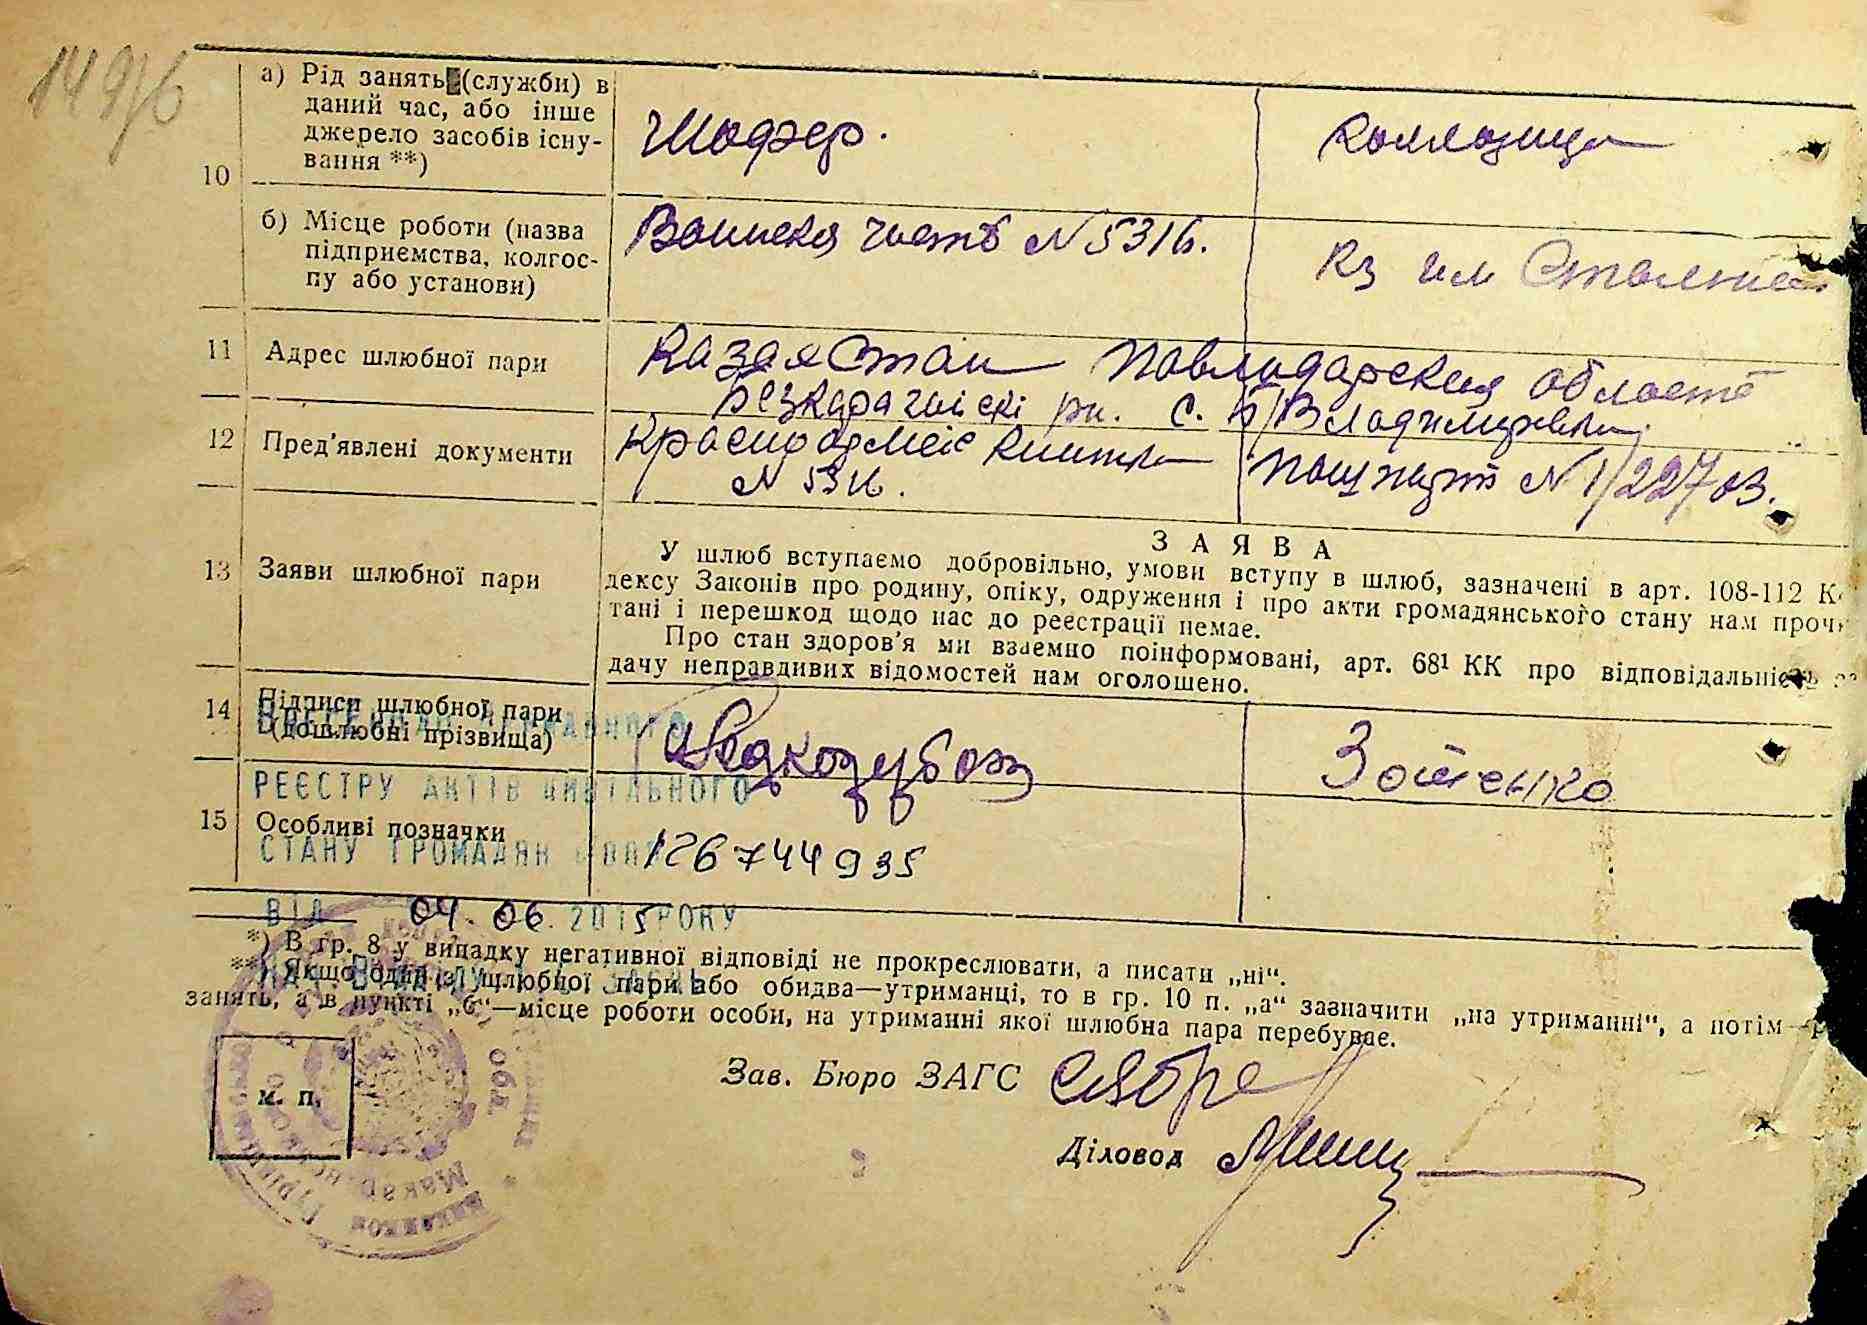 149/6
10
а) Рід занять (служби) в
даний час, або інше
джерело засобів існу-
вання **)
Шофер.
колхозница
б) Місце роботи (назва
підприємства, колгос-
пу або установи)
Воинская часть N 5316.
кз им Сталина
11 Адрес шлюбної пари
Казахстан Павлодарская область
с. Б/Владимировка
12 Пред'явлені документи
Красноармейс книжка
N 5316.
пашпорт N 1/22703.
13 Заяви шлюбної пари
ЗАЯВА
У шлюб вступаємо добровільно, умови вступу в шлюб, зазначені в арт. 108-112 К
дексу Законів про родину, опіку, одруження і про акти громадянського стану нам проч
тані і перешкод щодо нас до реєстрації немає.
Про стан здоров'я ми взаємно поінформовані, арт. 68¹ КК про відповідальність за
дачу неправдивих відомостей нам оголошено.
14 Підписи шлюбної пари
(дошлюбні прізвища)
Зотенко
ДЕРЖАВНОГО
РЕЄСТРУ АКТІВ ЦИВІЛЬНОГО
15 Особливі позначки
СТАНУ ГРОМАДЯН
126744935
ВІД 04.06.2015 РОКУ
*) В гр. 8 у випадку негативної відповіді не прокреслювати, а писати „ні“.
**) Якщо один із шлюбної пари або обидва—утриманці, то в гр. 10 п. „а“ зазначити „на утриманні“, а потім—р
занять, а в пункті „б“—місце роботи особи, на утриманні якої шлюбна пара перебуває.
м. п.
Зав. Бюро ЗАГС
Діловод